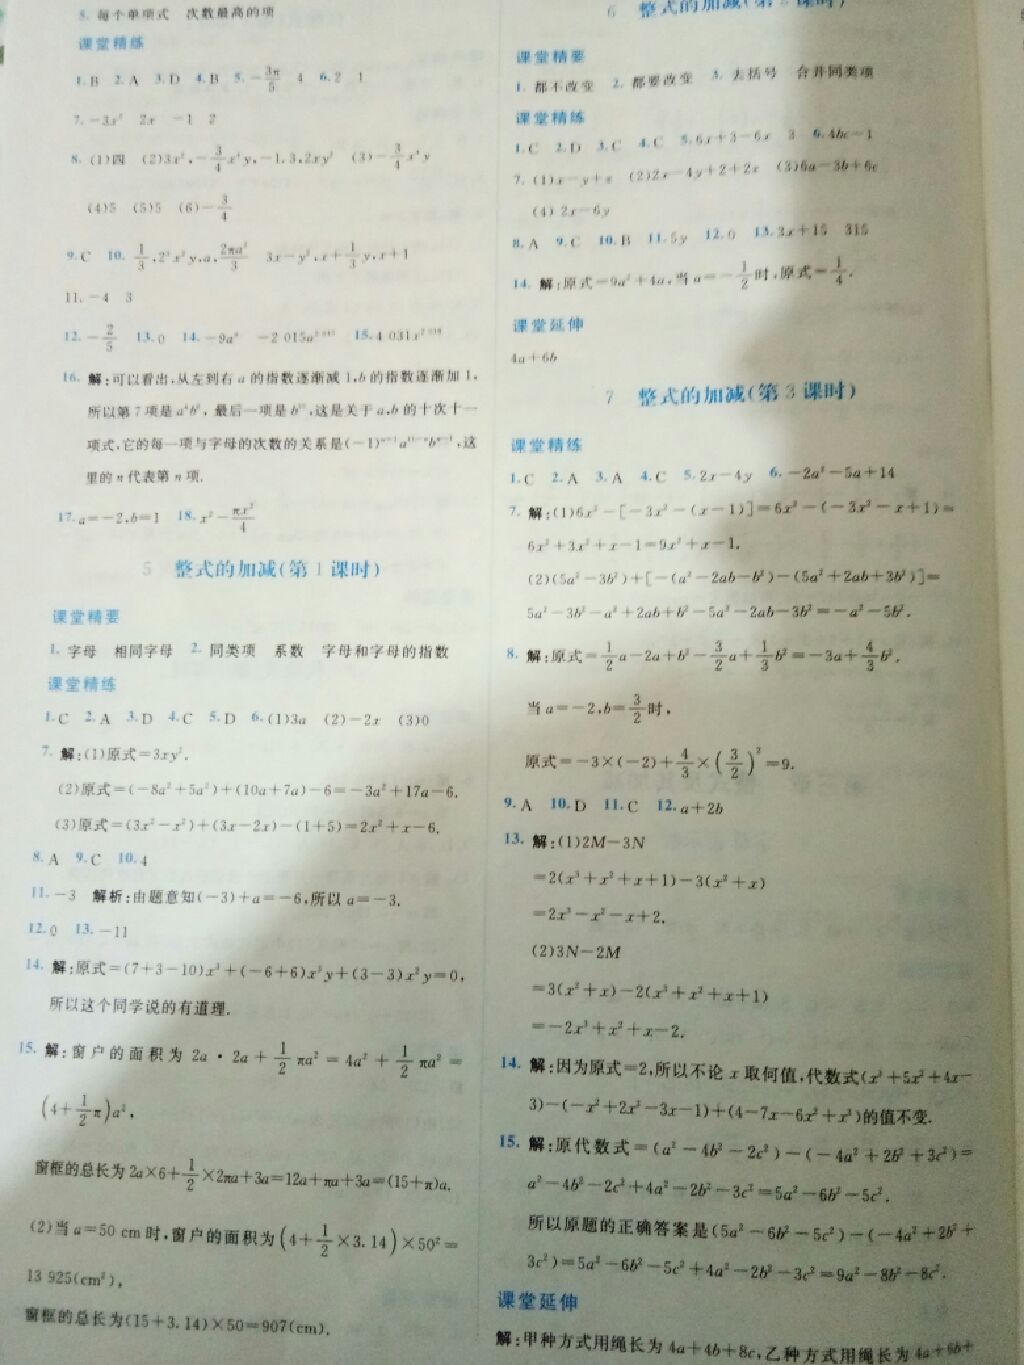 5. 每个单项式 次数最高的项
课堂精练
1. B 2. A 3. D 4. B 5. -3π/5 4 6. 2 1
7. -3x² 2x -1 2
(4)5 (5)5 (6)-3/4
11. -4 3
16. 解:可以看出,从左到右 a 的指数逐渐减 1,b 的指数逐渐加 1,
所以第 7 项是 a⁴b⁶, 最后一项是 b¹⁰,这是关于 a,b 的十次十一
项式,它的每一项与字母的次数的关系是(-1)ⁿ⁺¹a¹¹⁻ⁿbⁿ⁻¹,这
里的 n 代表第 n 项.
17. a=-2,b=1 18. x²-πx²/4
5 整式的加减(第 1 课时)
课堂精要
1. 字母 相同字母 2. 同类项 系数 字母和字母的指数
课堂精练
1. C 2. A 3. D 4. C 5. D 6. (1)3a (2)-2x (3)0
7. 解:(1)原式=3xy².
(2)原式=(-8a²+5a²)+(10a+7a)-6=-3a²+17a-6.
(3)原式=(3x²-x²)+(3x-2x)-(1+5)=2x²+x-6.
8. A 9. C 10. 4
11. -3 解析:由题意知(-3)+a=-6,所以 a=-3.
12. 0 13. -11
14. 解:原式=(7+3-10)x³+(-6+6)x³y+(3-3)x²y=0,
所以这个同学说的有道理.
15. 解:窗户的面积为 2a·2a+1/2πa²=4a²+1/2πa²=
(4+1/2π)a²,
窗框的总长为2a×6+1/2×2πa+3a=12a+πa+3a=(15+π)a.
(2)当 a=50 cm 时,窗户的面积为(4+1/2×3.14)×50²=
13 925(cm²),
窗框的总长为(15+3.14)×50=907(cm).
6 整式的加减(第 2 课时)
课堂精要
1. 都不改变 2. 都要改变 3. 去括号 合并同类项
课堂精练
1. C 2. D 3. C 4. C 5. 6x+3-6x 3 6. 4bc-1
7. (1)x-y+z (2)2x-4y+2+2z (3)6a-3b+6c
(4) 2x-6y
8. A 9. C 10. B 11. 5y 12. 0 13. 3x+15 315
14. 解:原式=9a²+4a,当 a=-1/2时,原式=1/4.
课堂延伸
4a+6b
7 整式的加减(第 3 课时)
课堂精练
1. C 2. A 3. A 4. C 5. 2x-4y 6. -2a²-5a+14
7. 解:(1)6x²-[-3x²-(x-1)]=6x²-(-3x²-x+1)=
6x²+3x²+x-1=9x²+x-1.
(2)(5a²-3b²)+[-(a²-2ab-b²)-(5a²+2ab+3b²)]=
5a²-3b²-a²+2ab+b²-5a²-2ab-3b²=-a²-5b².
8. 解:原式=1/2a-2a+b²-3/2a+1/3b²=-3a+4/3b²,
当 a=-2,b=3/2时,
原式=-3×(-2)+4/3×(3/2)²=9.
9. A 10. D 11. C 12. a+2b
13. 解:(1)2M-3N
=2(x³+x²+x+1)-3(x²+x)
=2x³-x²-x+2.
(2)3N-2M
=3(x²+x)-2(x³+x²+x+1)
=-2x³+x²+x-2.
14. 解:因为原式=2,所以不论 x 取何值,代数式(x³+5x²+4x-
3)-(-x²+2x³-3x-1)+(4-7x-6x²+x³)的值不变.
15. 解:原代数式=(a²-4b²-2c²)-(-4a²+2b²+3c²)=
a²-4b²-2c²+4a²-2b²-3c²=5a²-6b²-5c².
所以原题的正确答案是(5a²-6b²-5c²)-(-4a²+2b²+
3c²)=5a²-6b²-5c²+4a²-2b²-3c²=9a²-8b²-8c².
课堂延伸
解:甲种方式用绳长为 4a+4b+8c,乙种方式用绳长为 4a+6b+